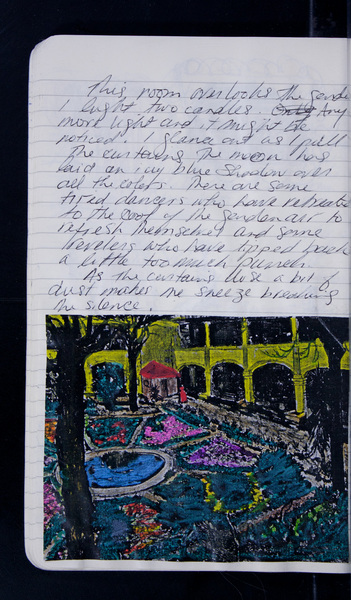 This room overlooks the garden
I light two candles. Only Any
more light and it might be
noticed. I glance out as I pull
the curtains. The moon has
laid an icy blue shadow over
all the colors. There are some
tired dancers who have retreated
to the cool of the garden air to
refresh themselves and some
travelers who have tipped back
a little too much punch.
As the curtains close a bit of
dust makes me sneeze breaking
the silence.